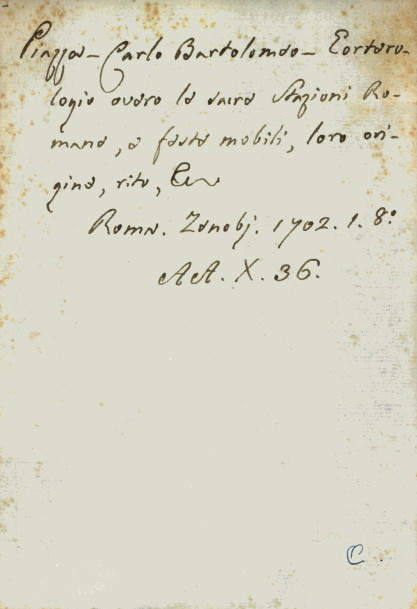 Piazza - Carlo Bartolomeo - Eortoro-
logio overo le sacre Stazioni Ro-
mane, e feste mobili, loro ori-
gine, rito, &c
Roma. Zenobj. 1702. 1. 8.º
AA. X. 36.
C